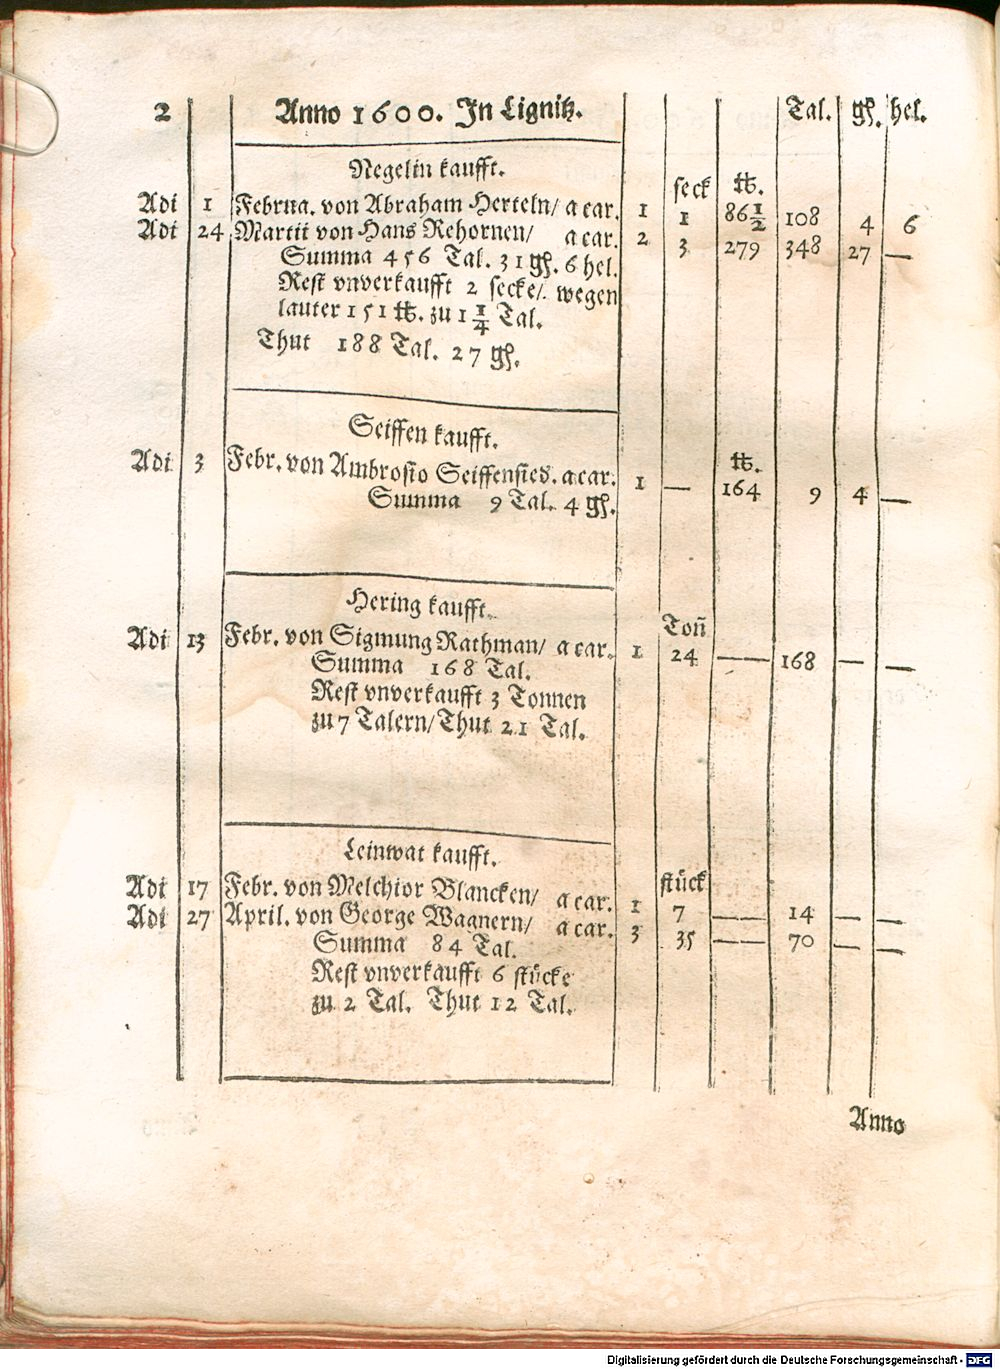 2 Anno 1600. In Lignitz. Tal. gl. hel.
Negelin kaufft. seck ℔.
Adi 1 Februa. von Abraham Herteln/ a car. 1 1 86 1/2 108 4 6
Adi 24 Martii von Hans Rehornen/ a car. 2 3 279 348 27 —
Summa 456 Tal. 31 gl. 6 hel.
Rest vnverkaufft 2 secke/ wegen
lauter 151 ℔. zu 1 1/4 Tal.
Thut 188 Tal. 27 gl.
Seiffen kaufft.
℔.
Adi 3 Febr. von Ambrosio Seiffensied. a car. 1 — 164 9 4 —
Summa 9 Tal. 4 gl.
Hering kaufft.
Toñ
Adi 13 Febr. von Sigmung Rathman/ a car. 1 24 — 168 — —
Summa 168 Tal.
Rest vnverkaufft 3 Tonnen
zu 7 Talern/ Thut 21 Tal.
Leinwat kaufft.
stück
Adi 17 Febr. von Melchior Blancken/ a car. 1 7 — 14 — —
Adi 27 April. von George Wagnern/ a car. 3 35 — 70 — —
Summa 84 Tal.
Rest vnverkaufft 6 stücke
zu 2 Tal. Thut 12 Tal.
Anno
Digitalisierung gefördert durch die Deutsche Forschungsgemeinschaft - DFG